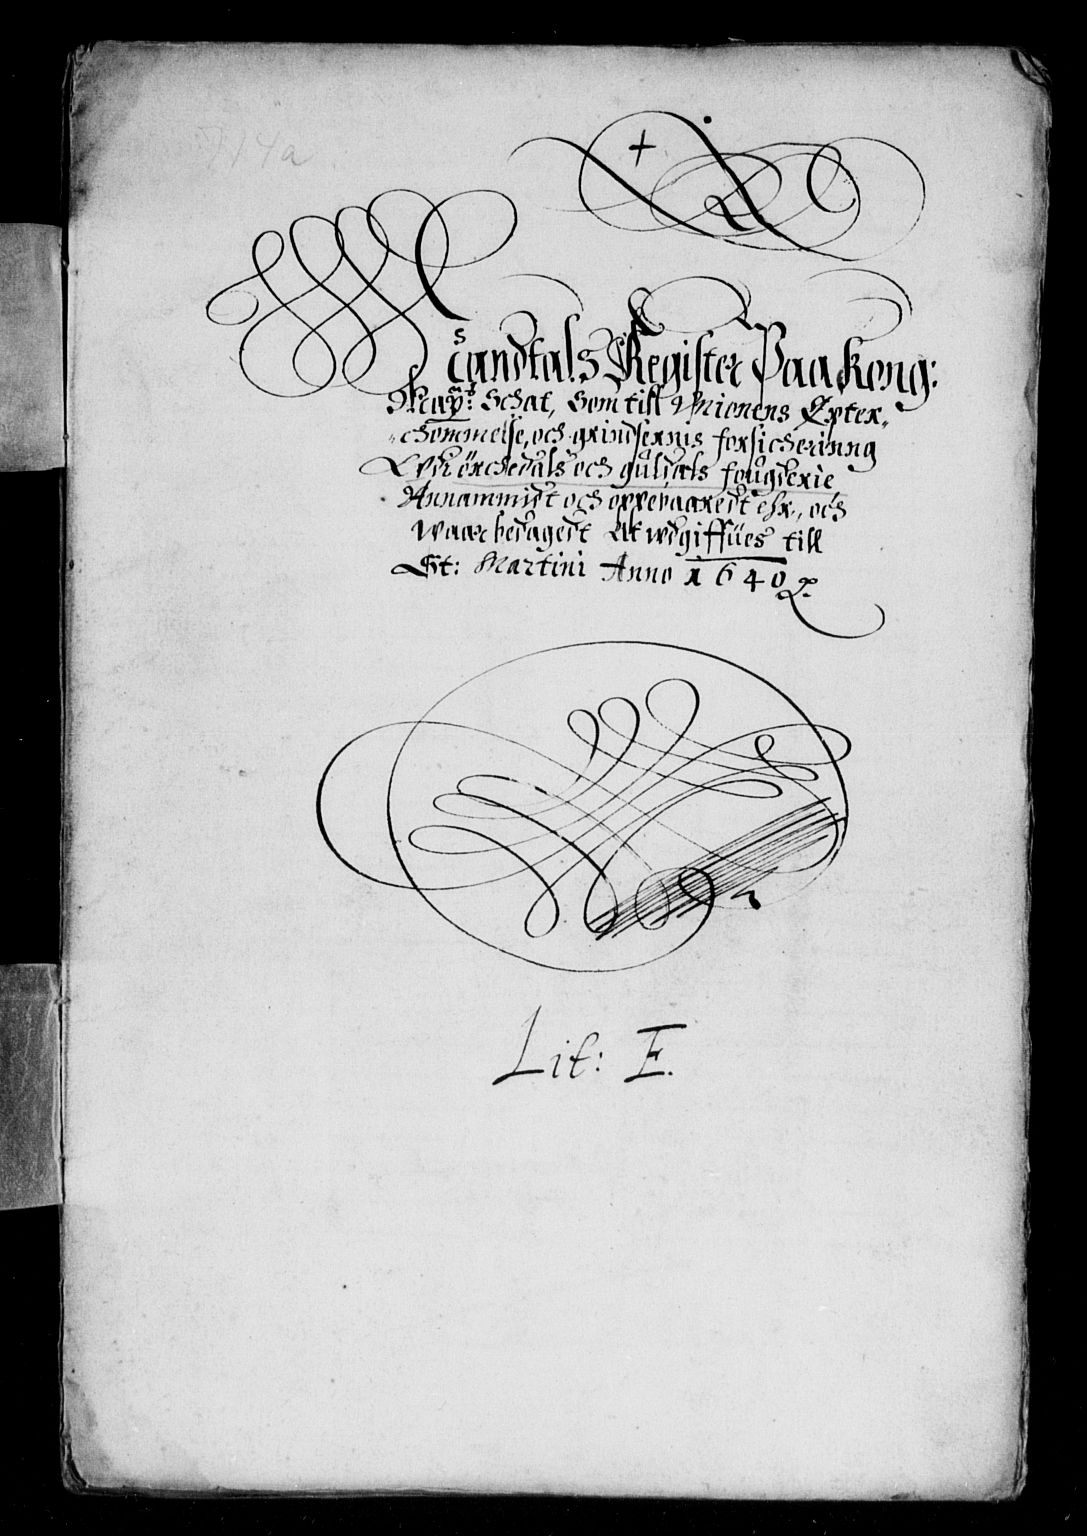 714a
Mandtals Register Paa Kong:
May:ts Schat, Som till Unionens Epter„
„chommelse, och grindsernis forsicherinng
Wdi örchedals och guldals fougderie
Annammidt och oppebaaredt ehr, och
waar bedagedt At wdgiffües till
St: Martini Anno 1640
Lit: E.